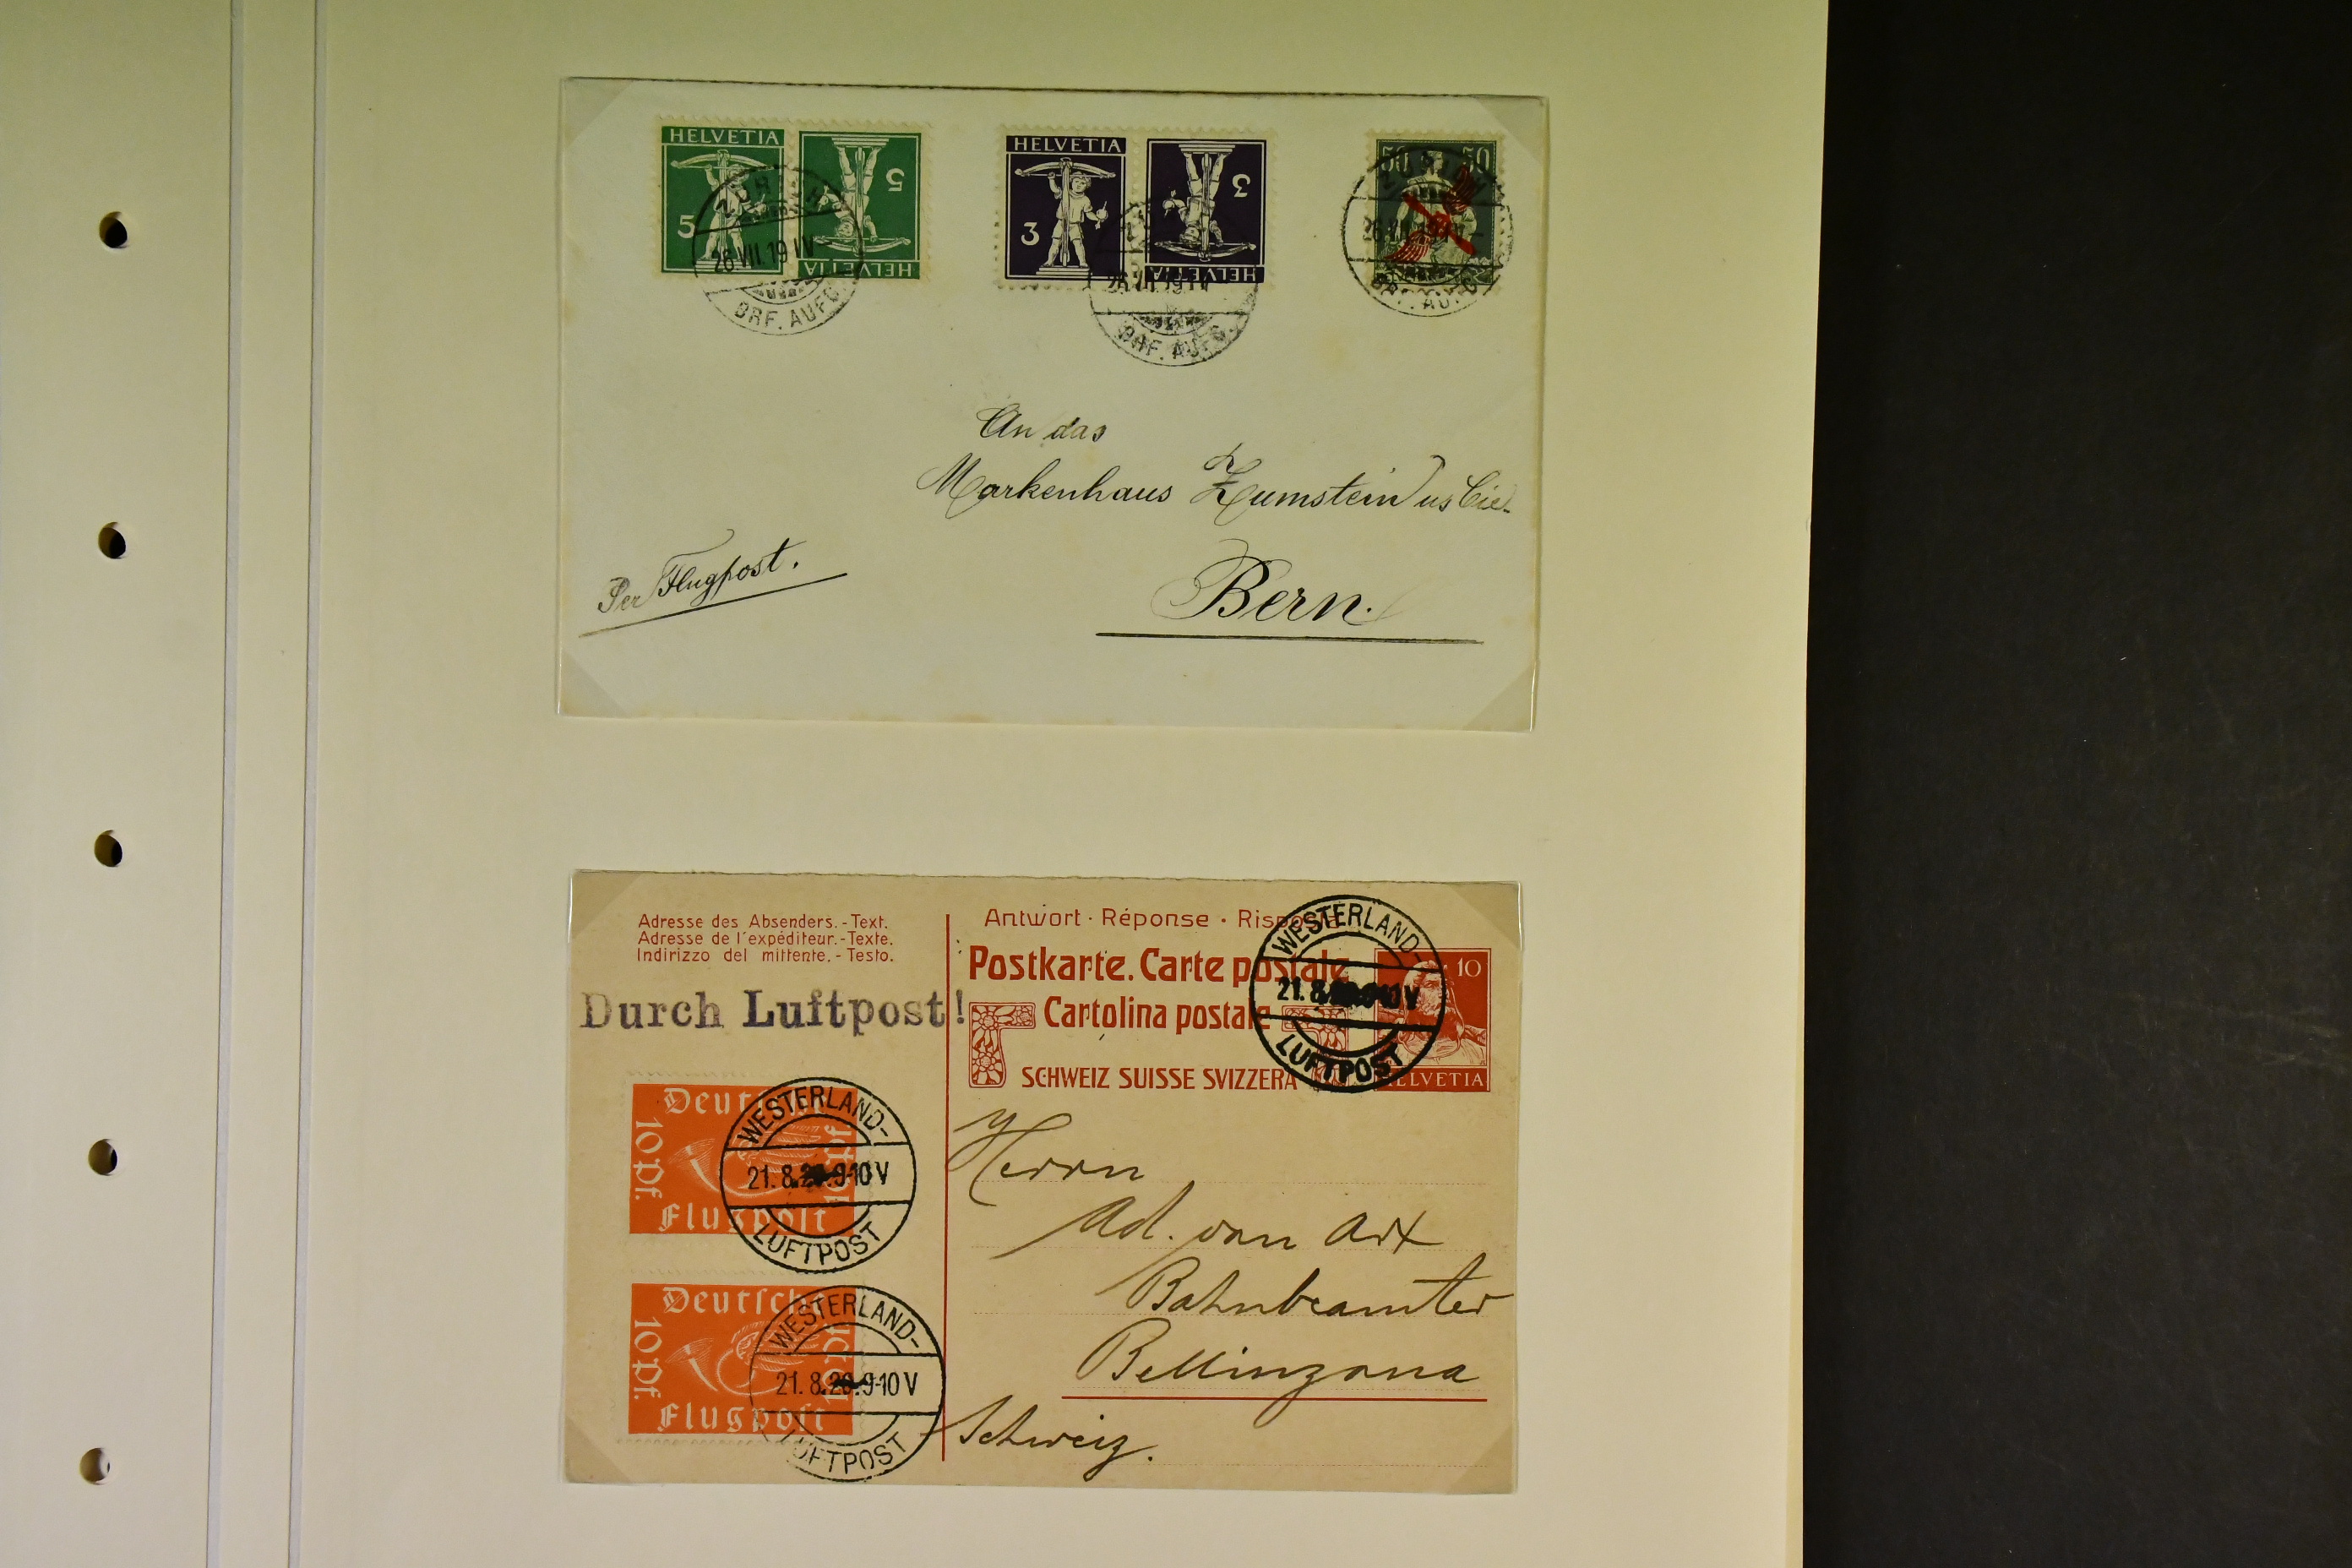 HELVETIA
5
5
HELVETIA
ZÜRICH
26.VII.19 IV
BRF. AUFG.
HELVETIA
3
3
HELVETIA
26.VII.19 IV
BRF. AUFG.
50 50
BRF. AUFG.
An das
Markenhaus Zumstein us Cie.
Per Flugpost.
Bern.
Adresse des Absenders.-Text.
Adresse de l'expéditeur.-Texte.
Indirizzo del mittente.-Testo.
Antwort · Réponse · Risposta
Postkarte. Carte postale
Cartolina postale
SCHWEIZ SUISSE SVIZZERA
10
HELVETIA
WESTERLAND-
21.8.20.9-10V
LUFTPOST
Durch Luftpost!
Deutsche
10 Pf.
10 Pf
Flugpost
WESTERLAND-
21.8.20.9-10V
LUFTPOST
Deutsche
10 Pf.
10 Pf
Flugpost
WESTERLAND-
21.8.20.9-10V
LUFTPOST
Herrn
Ad. von Arx
Bahnbeamter
Bellinzona
Schweiz.